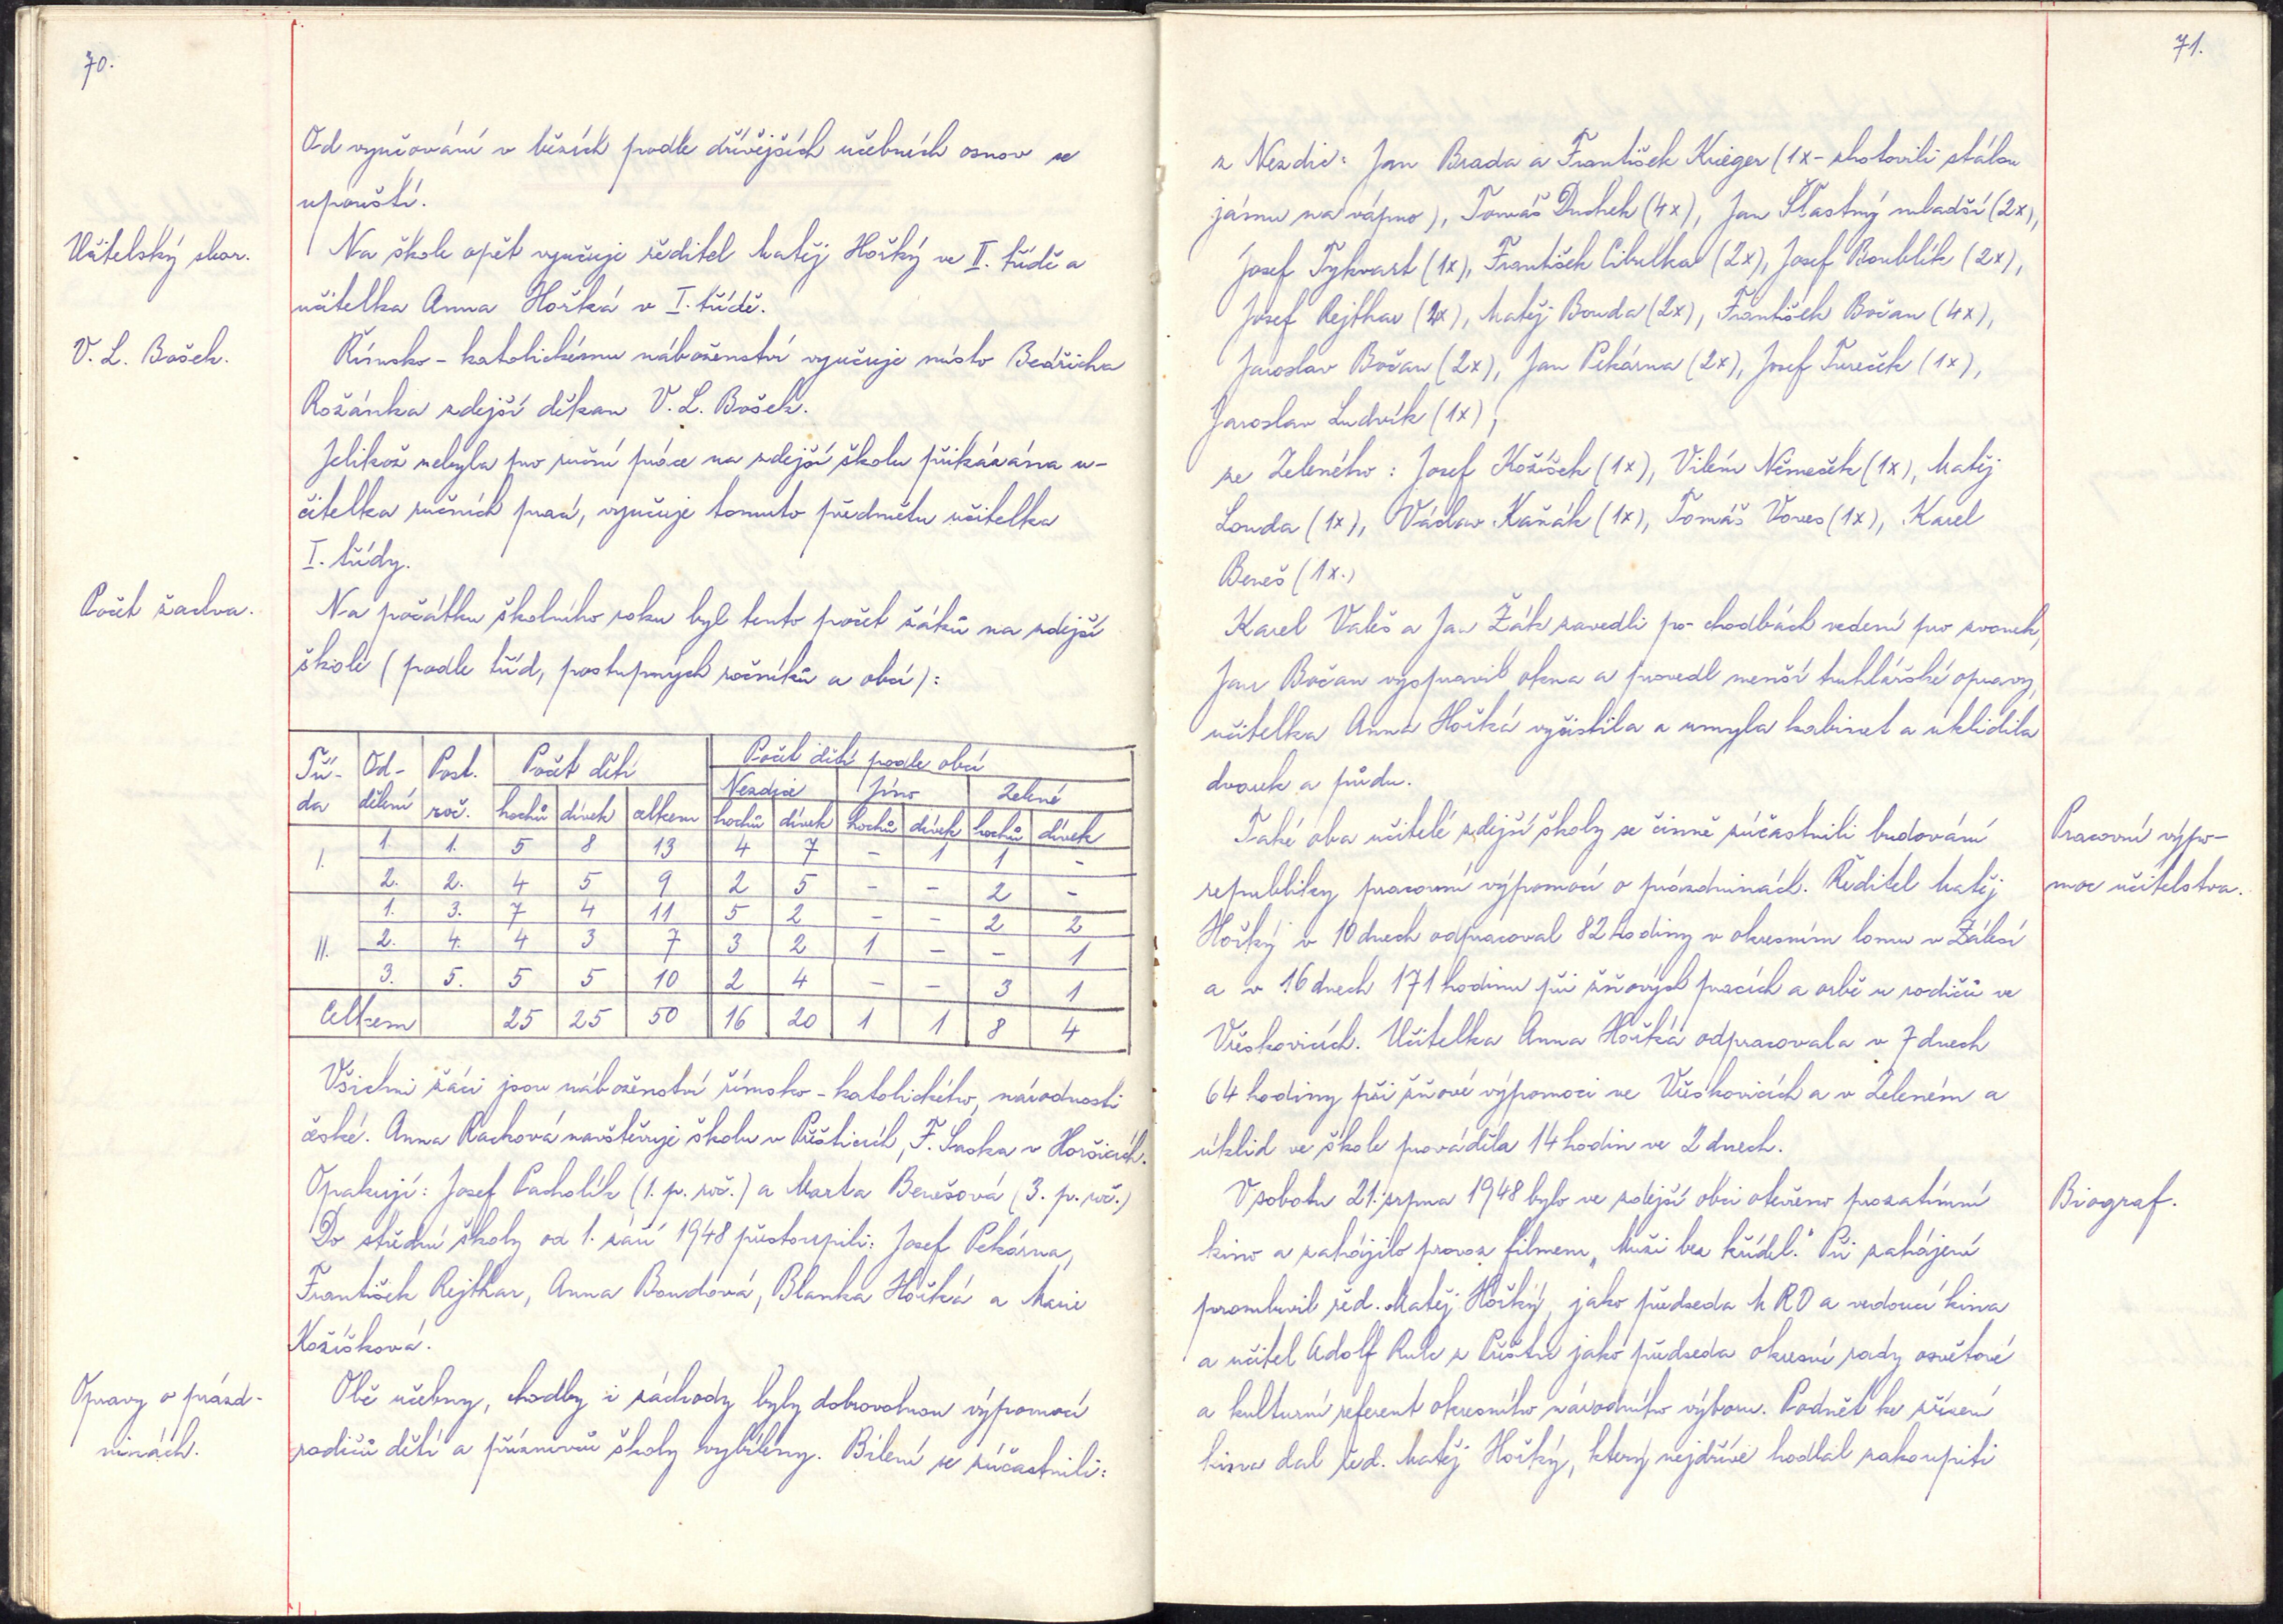 70.
Od vyučování v bězích podle dřívějších učebních osnov se
upouští.
Učitelský sbor.
Na škole opět vyučuje ředitel Matěj Hořký ve II. třídě a
učitelka Anna Hořká v I. třídě.
V. L. Bošek.
Římsko-katolickému náboženství vyučuje místo Bedřicha
Rožánka zdejší děkan V. L. Bošek.
Jelikož nebyla pro ruční práce na zdejší školu přikázána u-
čitelka ručních prací, vyučuje tomuto předmětu učitelka
I. třídy.
Počet žactva.
Na počátku školního roku byl tento počet žáků na zdejší
škole (podle tříd, postupných ročníků a obcí):
Tří- Od- Post. Počet dětí Počet dětí podle obcí
da dělení roč. hochů dívek celkem Nezdice Jíno Zelené
hochů dívek hochů dívek hochů dívek
I. 1. 1. 5 8 13 4 7 - 1 1 -
2. 2. 4 5 9 2 5 - - 2 -
II. 1. 3. 7 4 11 5 2 - - 2 2
2. 4. 4 3 7 3 2 1 - - 1
3. 5. 5 5 10 2 4 - - 3 1
Celkem 25 25 50 16 20 1 1 8 4
Všichni žáci jsou náboženství římsko-katolického, národnosti
české. Anna Rachová navštěvuje školu v Přešticích, F. Saska v Horšicích.
Opakují: Josef Pacholík (1. p. roč.) a Marta Benešová (3. p. roč.)
Do střední školy od 1. září 1948 přestoupili: Josef Pekárna,
František Rejthar, Anna Boudová, Blanka Hořká a Marie
Kožíšková.
Opravy o prázd-
ninách.
Obě učebny, chodby i záchody byly dobrovolnou výpomocí
rodičů dětí a příznivců školy vybíleny. Bílení se zúčastnili:
71.
z Nezdic: Jan Brada a František Krieger (1x - zhotovili stálou
jámu na vápno), Tomáš Duchek (4x), Jan Šťastný mladší (2x),
Josef Tykvart (1x), František Cibulka (2x), Josef Boublík (2x),
Josef Rejthar (2x), Matěj Bouda (2x), František Bočan (4x),
Jaroslav Bočan (2x), Jan Pekárna (2x), Josef Tureček (1x),
Jaroslav Ludvík (1x);
ze Zeleného: Josef Kožíšek (1x), Vilém Němeček (1x), Matěj
Louda (1x), Václav Kaňák (1x), Tomáš Voves (1x), Karel
Beneš (1x.)
Karel Valeš a Jan Žák zavedli po chodbách vedení pro zvonek,
Jan Bočan vyspravil okna a provedl menší truhlářské opravy,
učitelka Anna Hořká vyčistila a umyla kabinet a uklidila
dvorek a půdu.
Pracovní výpo-
moc učitelstva.
Také oba učitelé zdejší školy se činně zúčastnili budování
republiky pracovní výpomocí o prázdninách. Ředitel Matěj
Hořký v 10 dnech odpracoval 82 hodiny v okresním lomu v Zálesí
a v 16 dnech 171 hodinu při žňových pracích a orbě u rodičů ve
Vřeskovicích. Učitelka Anna Hořká odpracovala v 7 dnech
64 hodiny při žňové výpomoci ve Vřeskovicích a v Zeleném a
úklid ve škole prováděla 14 hodin ve 2 dnech.
Biograf.
V sobotu 21. srpna 1948 bylo ve zdejší obci otevřeno prozatímní
kino a zahájilo provoz filmem „Muži bez křídel." Při zahájení
promluvil řed. Matěj Hořký, jako předseda M R O a vedoucí kina
a učitel Adolf Rulc z Přeštic jako předseda okresní rady osvětové
a kulturní referent okresního národního výboru. Podnět ke zřízení
kina dal řed. Matěj Hořký, který nejdříve hodlal zakoupiti